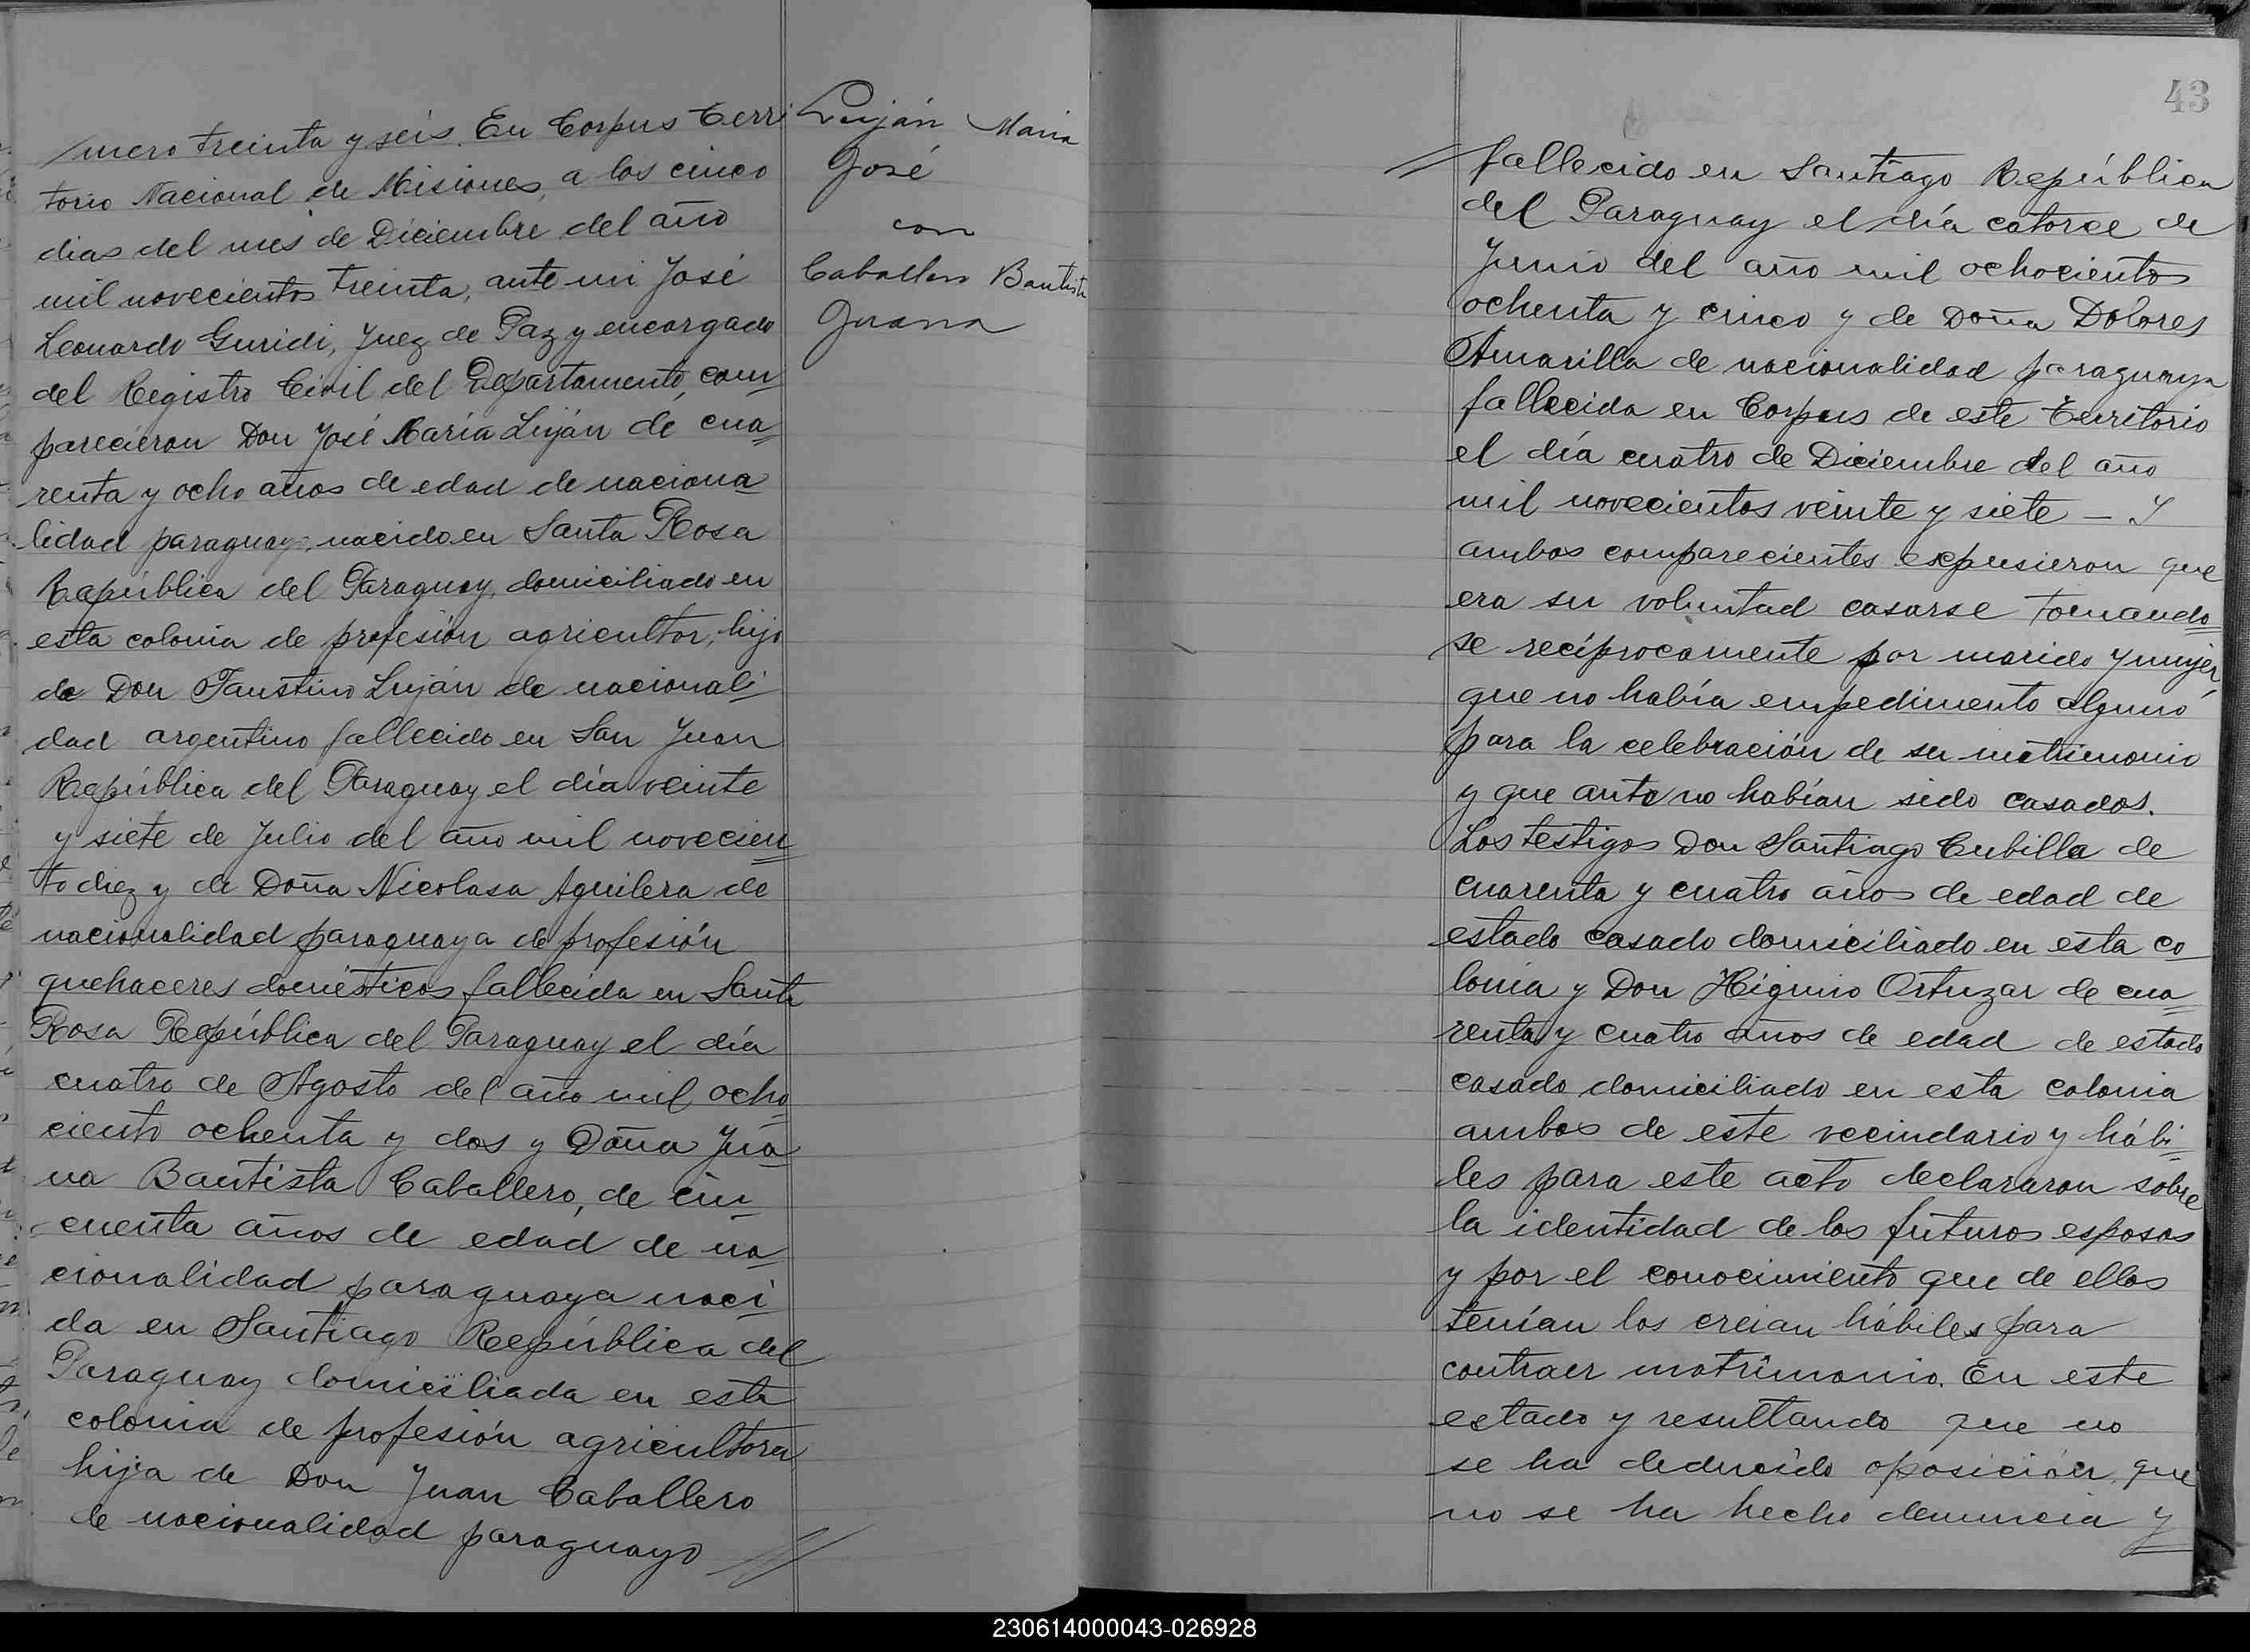 mero treinta y seis. En Corpus Terri
torio Nacional de Misiones, a los cinco
dias del mes de Diciembre del año
mil novecientos treinta, ante mi José
Leonardo Guridi, Juez de Paz y encargado
del Registro Civil del Departamento, com
parecieron Don José María Luján de cua
renta y ocho años de edad de naciona
lidad paraguay nacido en Santa Rosa
República del Paraguay, domiciliado en
esta colonia de profesión agricultor, hijo
de Don Faustino Luján de nacionali
dad argentino fallecido en San Juan
República del Paraguay el día veinte
y siete de Julio del año mil novecien
to diez y de Doña Nicolasa Aguilera de
nacionalidad paraguaya de profesión
quehaceres domésticos fallecida en Santa
Rosa República del Paraguay el día
cuatro de Agosto del año mil ocho
ciento ochenta y dos y Doña Jua
na Bautista Caballero, de cin
cuenta años de edad de na
cionalidad paraguaya naci
da en Santiago República del
Paraguay domiciliada en esta
colonia de profesión agricultora
hija de Don Juan Caballero
de nacionalidad paraguayo //
Luján Maria
José
con
Caballero Bautista
Juana
43
// fallecido en Santiago República
del Paraguay el día catorce de
Junio del año mil ochocientos
ochenta y cinco y de Doña Dolores
Amarilla de nacionalidad paraguaya
fallecida en Corpus de este Territorio
el día cuatro de Diciembre del año
mil novecientos veinte y siete – Y
ambos comparecientes expusieron que
era su voluntad casarse tomando
se recíprocamente por marido y mujer,
que no había empedimento alguno
para la celebración de su matrimonio
y que ante no habían sido casados.
Los testigos Don Santiago Cubilla de
cuarenta y cuatro años de edad de
estado casado domiciliado en esta co
lonia y Don Higinio Ortuzar de cua
renta y cuatro años de edad de estado
casado domiciliado en esta colonia
ambos de este vecindario y hábi
les para este acto declararon sobre
la identidad de los futuros esposos
y por el conocimiento que de ellos
tenían los creian hábiles para
contraer matrimonio. En este
estado y resultando que no
se ha deducido oposición, que
no se ha hecho denuncia y
230614000043-026928